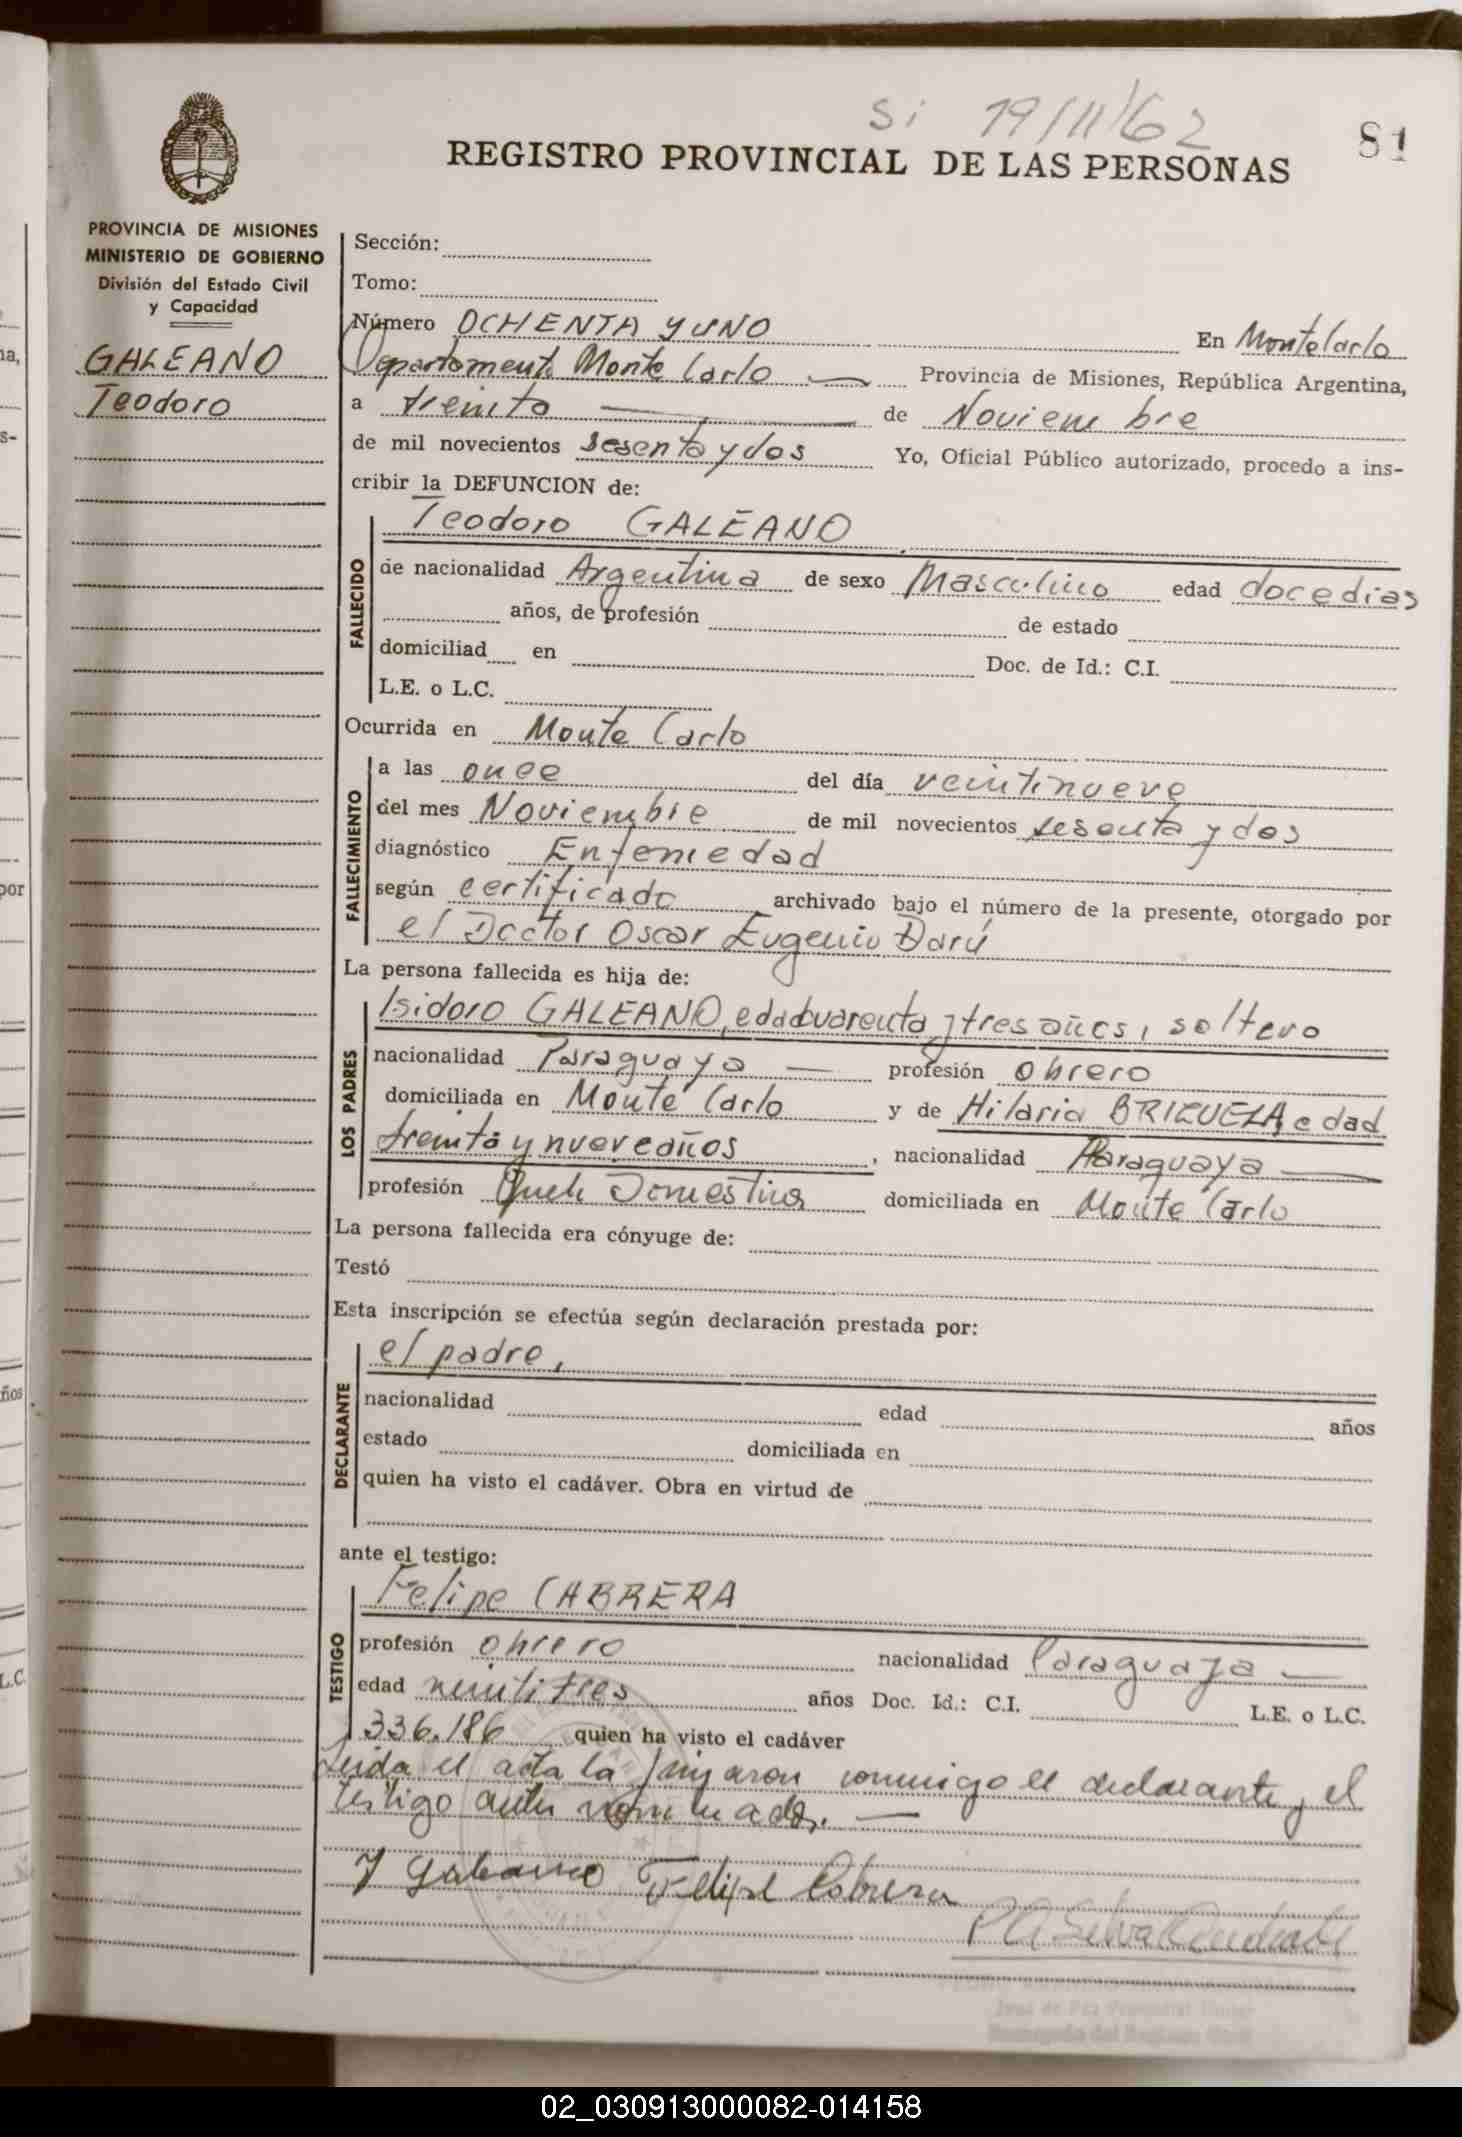 Si 19/11/62
81
REGISTRO PROVINCIAL DE LAS PERSONAS
PROVINCIA DE MISIONES
MINISTERIO DE GOBIERNO
División del Estado Civil
y Capacidad
GALEANO
Teodoro
Sección:
Tomo:
Número OCHENTA y UNO En Monte Carlo
Departamento Monte Carlo Provincia de Misiones, República Argentina,
a treinta de Noviembre
de mil novecientos sesenta y dos Yo, Oficial Público autorizado, procedo a ins-
cribir la DEFUNCION de:
FALLECIDO
Teodoro GALEANO
de nacionalidad Argentina de sexo Masculino edad doce dias
años, de profesión de estado
domiciliad en Doc. de Id.: C.I.
L.E. o L.C.
Ocurrida en Monte Carlo
FALLECIMIENTO
a las once del día veintinueve
del mes Noviembre de mil novecientos sesenta y dos
diagnóstico Enfemedad
según certificado archivado bajo el número de la presente, otorgado por
el Doctor Oscar Eugenio Darú
La persona fallecida es hija de:
LOS PADRES
Isidoro GALEANO, edad cuarenta y tres años, soltero
nacionalidad Paraguaya profesión obrero
domiciliada en Monte Carlo y de Hilaria BRIZUELA, edad
treinta y nueve años, nacionalidad Paraguaya
profesión Queh Domesticos domiciliada en Monte Carlo
La persona fallecida era cónyuge de:
Testó
Esta inscripción se efectúa según declaración prestada por:
DECLARANTE
el padre,
nacionalidad edad años
estado domiciliada en
quien ha visto el cadáver. Obra en virtud de
ante el testigo:
TESTIGO
Felipe CABRERA
profesión obrero nacionalidad Paraguaya
edad veintitres años Doc. Id.: C.I. L.E. o L.C.
336.186 quien ha visto el cadáver
Leida el acta la firmaron conmigo el declarante y el
testigo antes nominados.
Y Galeano Felipe Cabrera
02_030913000082-014158